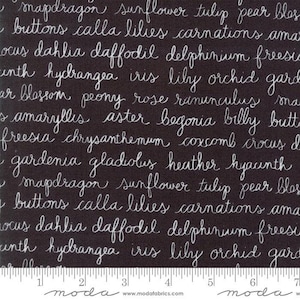 snapdragon sunflower tulip pear blos
buttons calla lilies carnations ama
ocus dahlia daffodil delphinium freesi
inth hydrangea iris lily orchid gard
ar blossom peony rose ranunculus sna
s amaryllis aster begonia billy butt
freesia chrysanthemum coxcomb crocus d
gardenia gladiolus heather hyacinth
snapdragon sunflower tulip pear blos
buttons calla lilies carnations ama
ocus dahlia daffodil delphinium freesi
inth hydrangea iris lily orchid gard
1 2 3 4 5 6 7
moda www.modafabrics.com moda